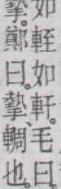 如輊如軒。毛曰
摯。鄭曰。摯、輖也。